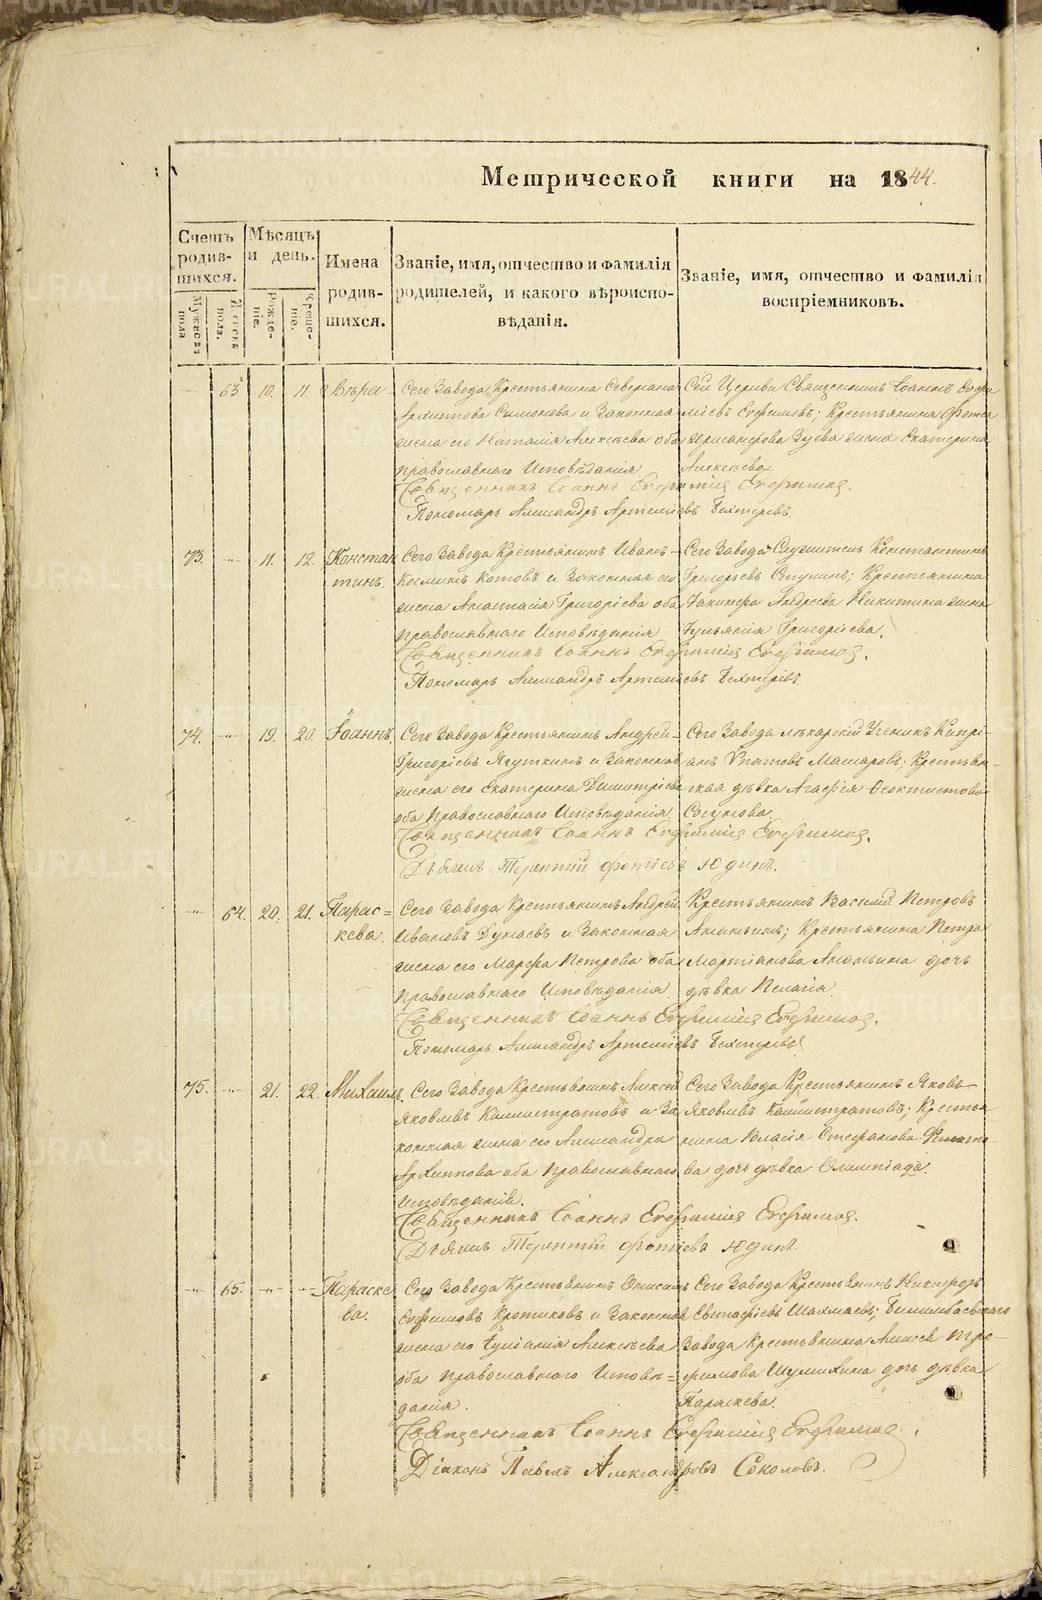 Метрической книги на 1844.
Счетъ родив-шихся.
Мужеска пола
Женска пола.
Мѣсяцъ и день.
Рожде-ніе.
Креще-ніе.
Имена родив-шихся.
Званіе, имя, отчество и фамилія родителей, и какого вѣроиспо-вѣданія.
Званіе, имя, отчество и фамилія воспріемниковъ.
63. 10. 11. Вѣра
Сего Завода Крестьянина Северіана
Архиппова Симонова и Законная
жена его Наталія Алексѣева оба
православнаго Исповѣданія
Сей Церкви Священникъ Іоаннъ Евфи
міевъ Евфимовъ; Крестьянина
Хрисанфова Зуева жена Екатерина
Алексѣева
Священникъ Іоаннъ Евфиміевъ Евфимовъ.
Пономарь Александръ Артемьевъ Бехтеревъ.
73. 11. 12. Констан
тинъ.
Сего Завода Крестьянинъ Иванъ
Косминъ Котовъ и Законная его
жена Анастасія Григоріева оба
православнаго Исповѣданія
Сего Завода Служитель Константинъ
Григорьевъ; Крестьянина
Іакинфа Андреева Никитина жена
Іульянія Григоріева.
Священникъ Іоаннъ Евфиміевъ Евфимовъ.
Пономарь Александръ Артемьевъ Бехтеревъ.
74. 19. 20. Іоаннъ.
Сего Завода Крестьянинъ Андрей
Григорьевъ Ягуткинъ и Законная
жена его Екатерина Димитріева
оба православнаго Исповѣданія
Сего Завода лѣкарскій Ученикъ Кипрі-
анъ Ипатовъ Макаровъ; Крестьян-
ская дѣвка Агафія Феоктистова
Сосунова.
Священникъ Іоаннъ Евфиміевъ Евфимовъ.
Дьячекъ Терентій Фотіевъ Юдинъ.
64. 20. 21. Парас=
кева.
Сего Завода Крестьянинъ Андрей
Ивановъ Дунаевъ и Законная
жена его Марфа Петрова оба
православнаго Исповѣданія.
Крестьянинъ Василій Петровъ
Ананьинъ; Крестьянина Петра
Мартіанова Ананьина дочь
дѣвка Пелагія.
Священникъ Іоаннъ Евфиміевъ Евфимовъ.
Пономарь Александръ Артемьевъ Бехтеревъ
75. 21. 22. Михаилъ.
Сего Завода Крестьянинъ Алексей
Яковлевъ Каллистратовъ и За
конная жена его Александра
Архиппова оба православнаго
исповѣданія.
Сего Завода Крестьянинъ Яковъ
Яковлевъ Каллистратовъ; Крестья
нина Власія Стефанова
ва дочь дѣвка Олимпіада.
Священникъ Іоаннъ Евфиміевъ Евфимовъ.
Дьячекъ Терентій Фотіевъ Юдинъ.
65. Параске
ва.
Сего Завода Крестьянинъ Онисимъ
Евфимовъ Кротиковъ и Законная
жена его Алексѣева
оба православнаго Исповѣ=
данія.
Сего Завода Крестьянинъ Никифоръ
Евстафіевъ Шахмаевъ; Билимбаевскаго
Завода Крестьянина Алексѣя Тро-
фимова Шумихина дочь дѣвка
Параскева.
Священникъ Іоаннъ Евфиміевъ Евфимовъ
Діаконъ Павелъ Александровъ Соколовъ.
METRIKI.GASO-URAL.RU